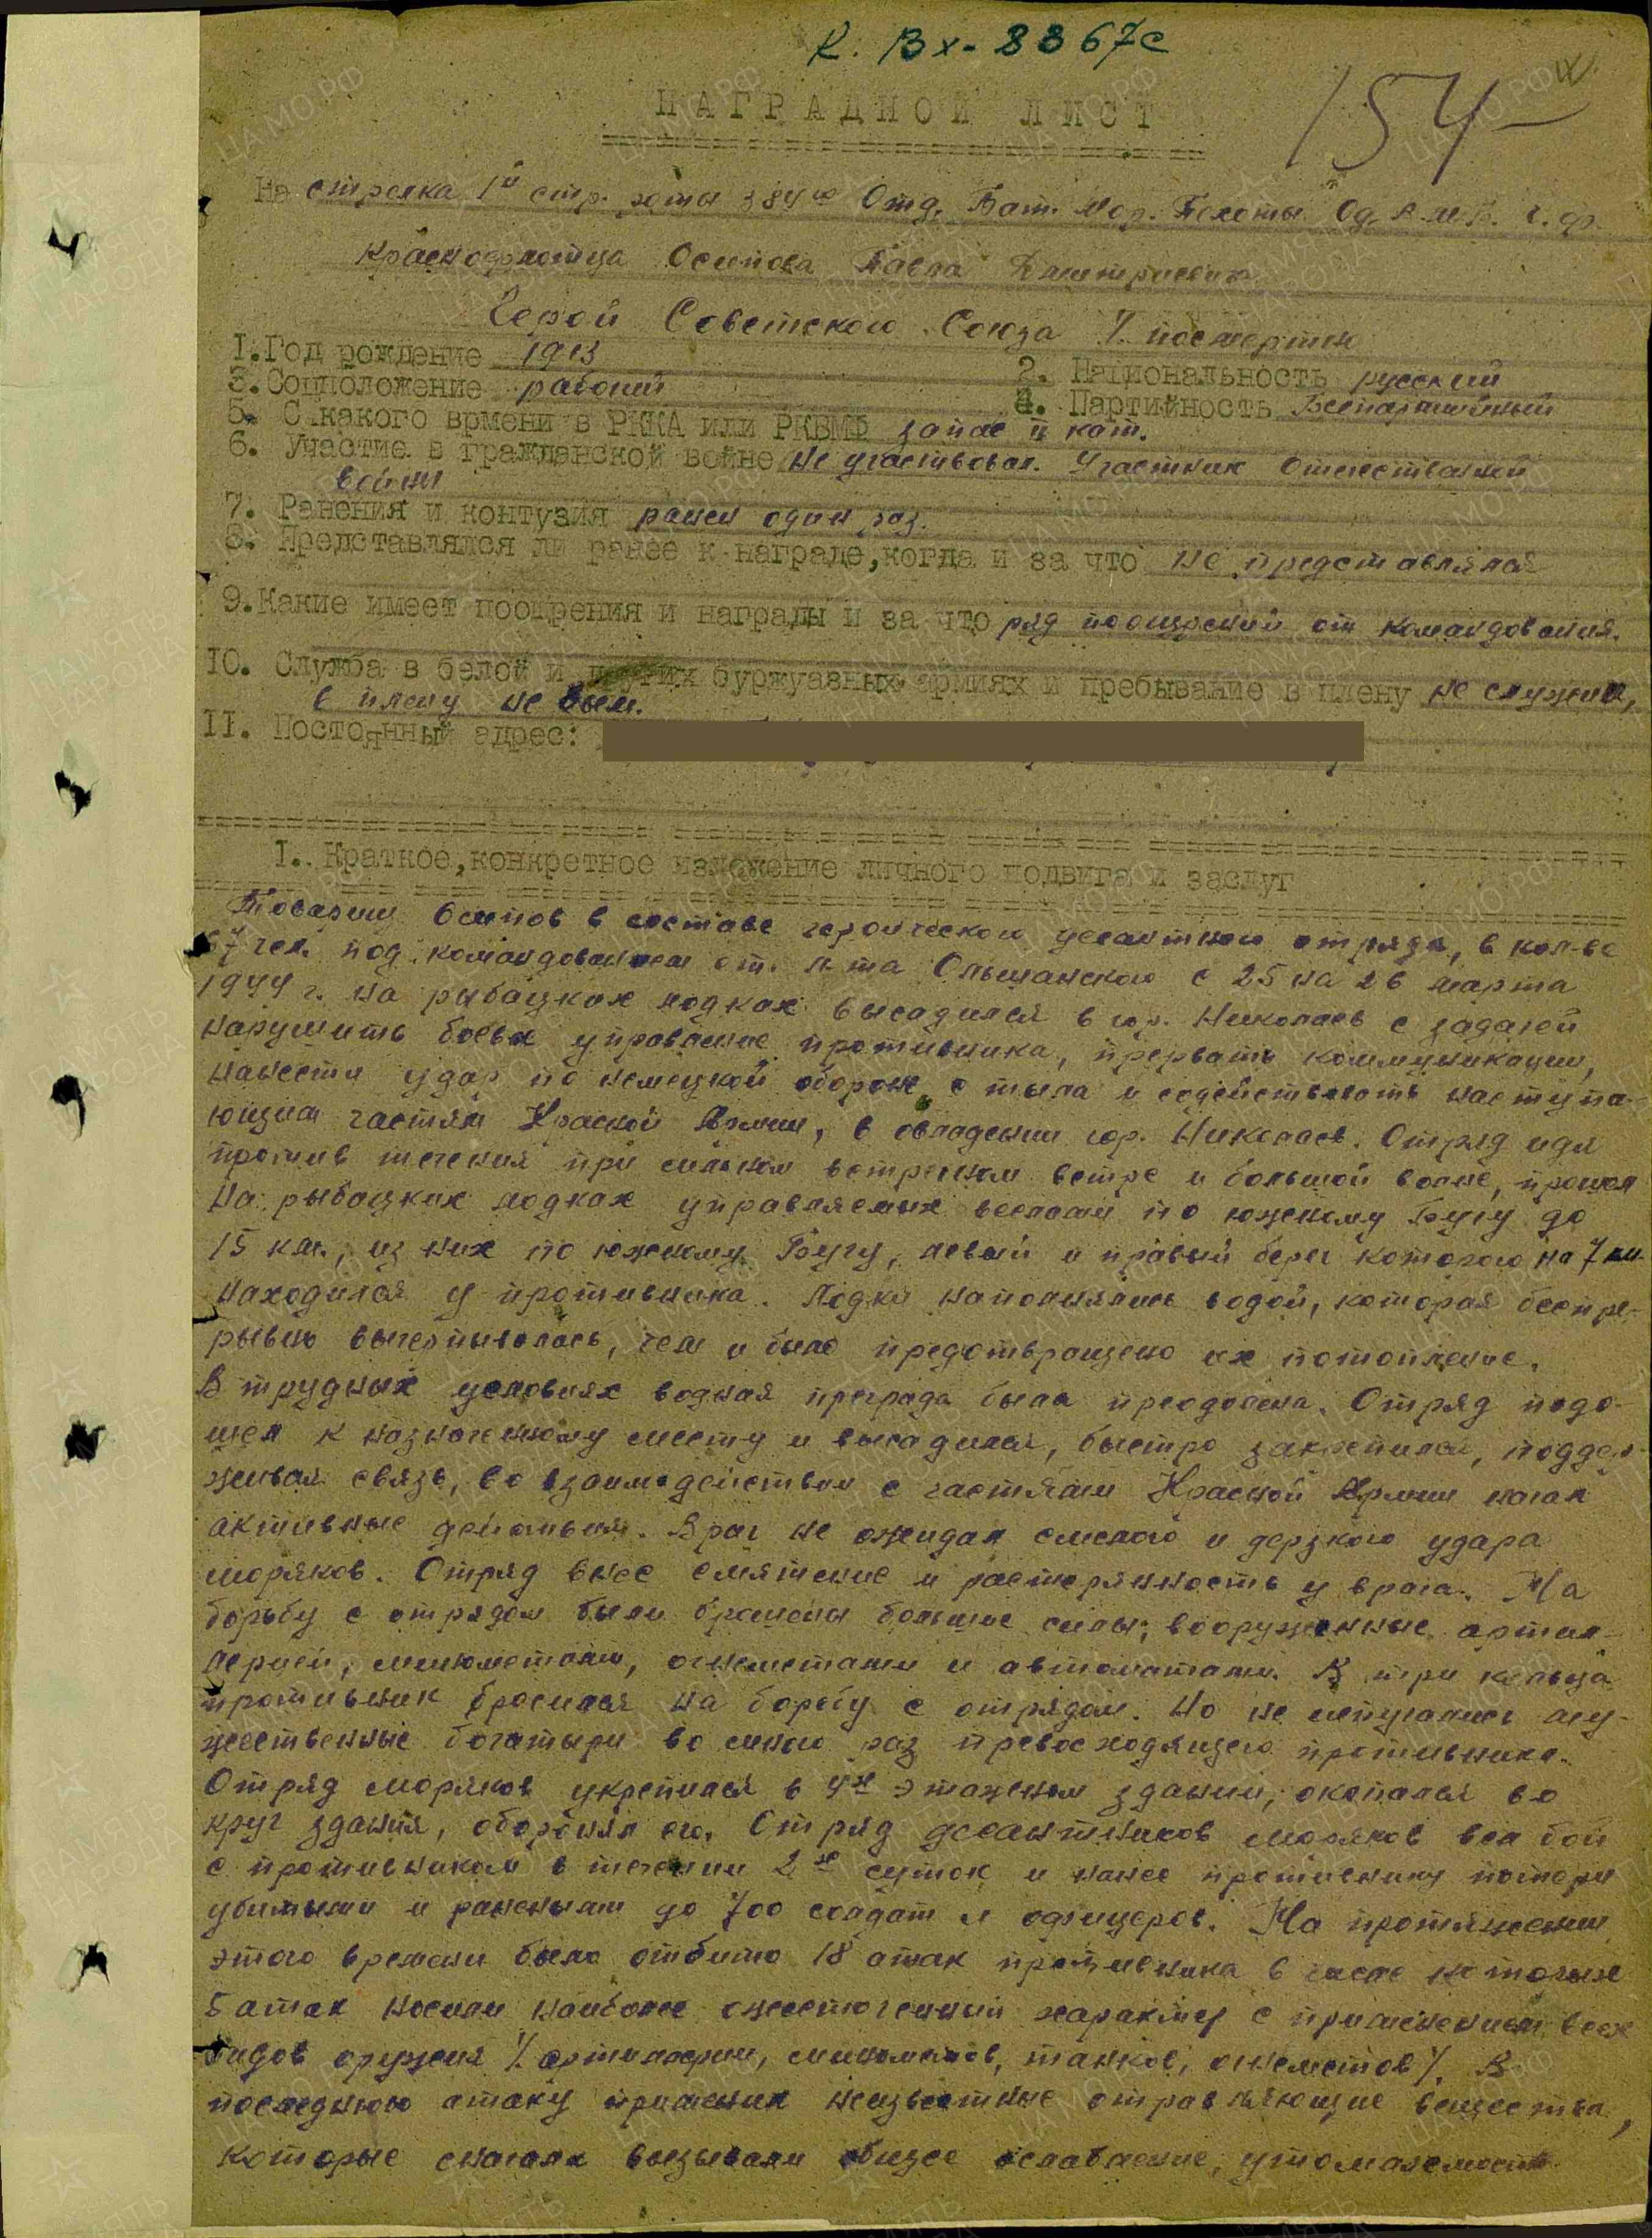 К. Вх- 8367с
154
НАГРАДНОЙ ЛИСТ
На стрелка 1й стр. роты 384го Отд. Бат. Мор. Пехоты Од. В.М.Б. ч.ф.
краснофлотца Осипова Павла Дмитриевича
Герой Советского Союза /. посмертно
I. Год рождение 1913
2. Национальность русский
3. Соцположение рабочий
4. Партийность Беспартийный
5. С какого врмени в РККА или РКВМФ запас II кат.
6. Участие в гражданской войне не участвовал. Участник Отечественной
войны
7. Ранения и контузия ранен один раз.
8. Представлялся ли ранее к награде, когда и за что не представлялся
9. Какие имеет поощрения и награды и за что ряд поощрений от командования.
10. Служба в белой и других буржуазных армиях и пребывание в плену не служил,
в плену не был.
II. Постоянный адрес:
I. Краткое, конкретное изложение личного подвига и заслуг
Товарищ Осипов в составе героического десантного отряда, в кол-ве
67 чел. под командованием ст. л-та Ольшанского с 25 на 26 марта
1944 г. на рыбацких лодках высадился в гор. Николаев с задачей
нарушить боевое управление противника, прервать коммуникации,
нанести удар по немецкой обороне с тыла и содействовать наступа-
ющим частям Красной Армии, в овладении гор. Николаев. Отряд идя
против течения при сильном встречном ветре и большой волне, прошел
на рыбацких лодках управляемых веслами по южному Бугу до
15 км., из них по южному Бугу, левый и правый берег которого на 7 км.
находился у противника. Лодки наполнялись водой, которая беспре-
рывно вычерпывалась, чем и было предотвращено их потопление.
В трудных условиях водная преграда была преодолена. Отряд подо-
шел к назначенному месту и высадился, быстро закрепился, поддер-
живая связь, во взаимодействии с частями Красной Армии начал
активные действия. Враг не ожидал смелого и дерзкого удара
моряков. Отряд внес смятение и растерянность у врага. На
борьбу с отрядом были брошены большие силы, вооруженные артил-
лерией, минометами, огнеметами и автоматами. В три кольца
противник бросился на борьбу с отрядом. Но не испугались му-
жественные богатыри во много раз превосходящего противника.
Отряд моряков укрепился в 4х этажном здании, окопался во
круг здания, оборонял его. Отряд десантников моряков вел бой
с противником в течении 2х суток и нанес противнику потери
убитыми и ранеными до 700 солдат и офицеров. На протяжении
этого времени было отбито 18 атак противника в числе которых
5 атак носили наиболее ожесточенный характер с применением всех
видов оружия /. артиллерии, минометов, танков, огнеметов /. В
последнюю атаку применил неизвестные отравляющие вещества,
которые сначала вызывали общее ослабление, утомляемость